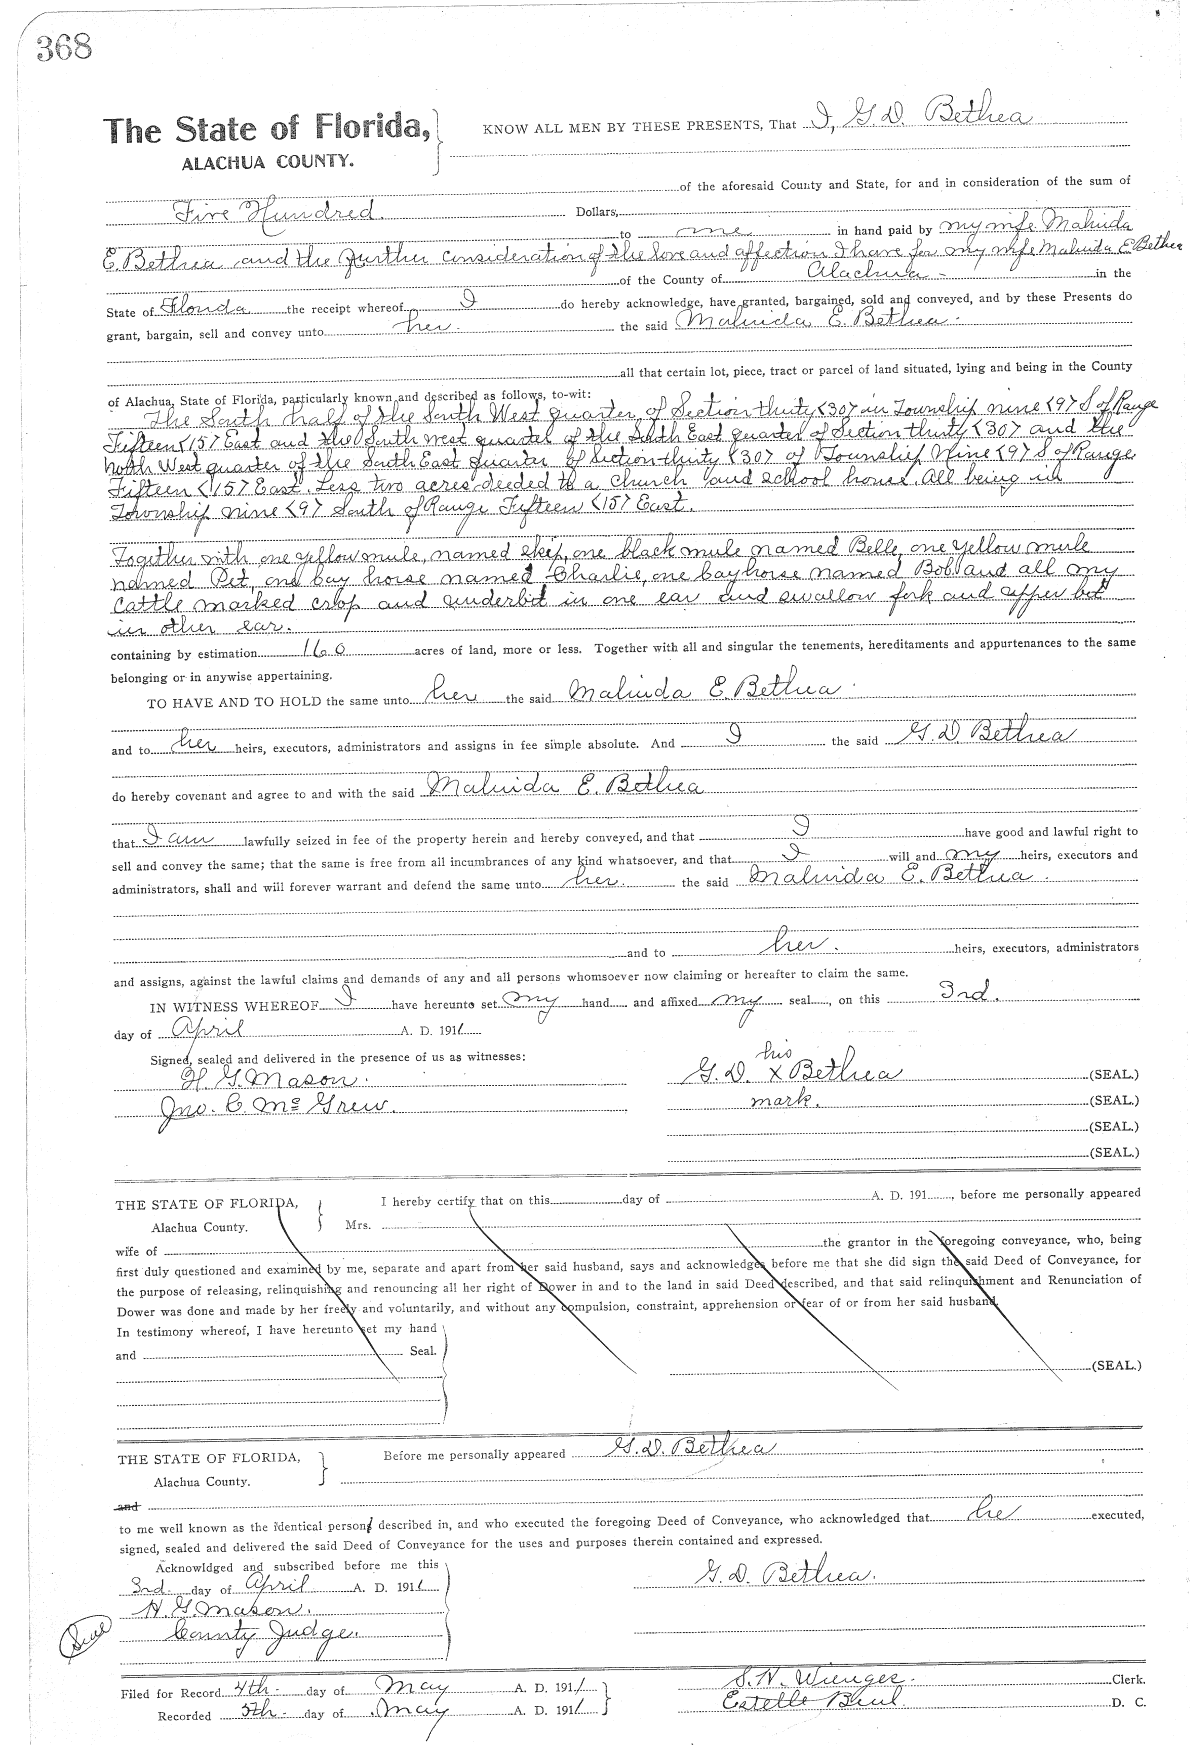 368
The State of Florida,
ALACHUA COUNTY.
KNOW ALL MEN BY THESE PRESENTS, That I, G.D. Bethea
of the aforesaid County and State, for and in consideration of the sum of
Five Hundred Dollars,
to me in hand paid by my wife Malinda
E. Bethea and the further consideration of the love and affection I have for my wife Malinda E Bethea
of the County of Alachua - in the
State of Florida the receipt whereof I do hereby acknowledge, have granted, bargained, sold and conveyed, and by these Presents do
grant, bargain, sell and convey unto her. the said Malinda E. Bethea.
all that certain lot, piece, tract or parcel of land situated, lying and being in the County
of Alachua, State of Florida, particularly known and described as follows, to-wit:
The South half of the South West quarter of Section thirty <30> in Township nine <9> S of Range
Fifteen <15> East and the South west quarter of the South East quarter of Section thirty <30> and the
north West quarter of the South East quarter of Section thirty <30> of Township Nine <9> S of Range
Fifteen <15> East. Less two acres deeded to a church and school house. All being in
Township nine <9> South of Range Fifteen <15> East.
Together with one yellow mule, named Skip, one black mule named Belle, one yellow mule
named Pet, one bay horse named Charlie, one bay horse named Bob. and all my
Cattle marked crop and underbit in one ear and swallow fork and upper bit
in other ear.
containing by estimation 160 acres of land, more or less. Together with all and singular the tenements, hereditaments and appurtenances to the same
belonging or in anywise appertaining.
TO HAVE AND TO HOLD the same unto her the said Malinda E. Bethea.
and to her heirs, executors, administrators and assigns in fee simple absolute. And I the said G.D. Bethea
do hereby covenant and agree to and with the said Malinda E. Bethea
that I am lawfully seized in fee of the property herein and hereby conveyed, and that I have good and lawful right to
sell and convey the same; that the same is free from all incumbrances of any kind whatsoever, and that I will and my heirs, executors and
administrators, shall and will forever warrant and defend the same unto her. the said Malinda E. Bethea.
and to her. heirs, executors, administrators
and assigns, against the lawful claims and demands of any and all persons whomsoever now claiming or hereafter to claim the same.
IN WITNESS WHEREOF I have hereunto set my hand and affixed my seal, on this 3rd.
day of April A. D. 1911
Signed, sealed and delivered in the presence of us as witnesses:
H. G. Mason.
Jno. C. McGrew.
his
G.D. X Bethea (SEAL.)
mark. (SEAL.)
(SEAL.)
(SEAL.)
THE STATE OF FLORIDA,
Alachua County.
I hereby certify that on this day of A. D. 191 , before me personally appeared
Mrs.
wife of the grantor in the foregoing conveyance, who, being
first duly questioned and examined by me, separate and apart from her said husband, says and acknowledges before me that she did sign the said Deed of Conveyance, for
the purpose of releasing, relinquishing and renouncing all her right of Dower in and to the land in said Deed described, and that said relinquishment and Renunciation of
Dower was done and made by her freely and voluntarily, and without any compulsion, constraint, apprehension or fear of or from her said husband.
In testimony whereof, I have hereunto set my hand
and Seal.
(SEAL.)
THE STATE OF FLORIDA,
Alachua County.
Before me personally appeared G.D. Bethea
and
to me well known as the identical person described in, and who executed the foregoing Deed of Conveyance, who acknowledged that he executed,
signed, sealed and delivered the said Deed of Conveyance for the uses and purposes therein contained and expressed.
Acknowldged and subscribed before me this
3rd. day of April A. D. 1911
H. G. Mason.
County Judge.
Seal
G. D. Bethea.
Filed for Record 4th. day of May A. D. 1911
Recorded 5th. day of May A. D. 1911
S. H. Wienges. Clerk.
Estelle D. C.